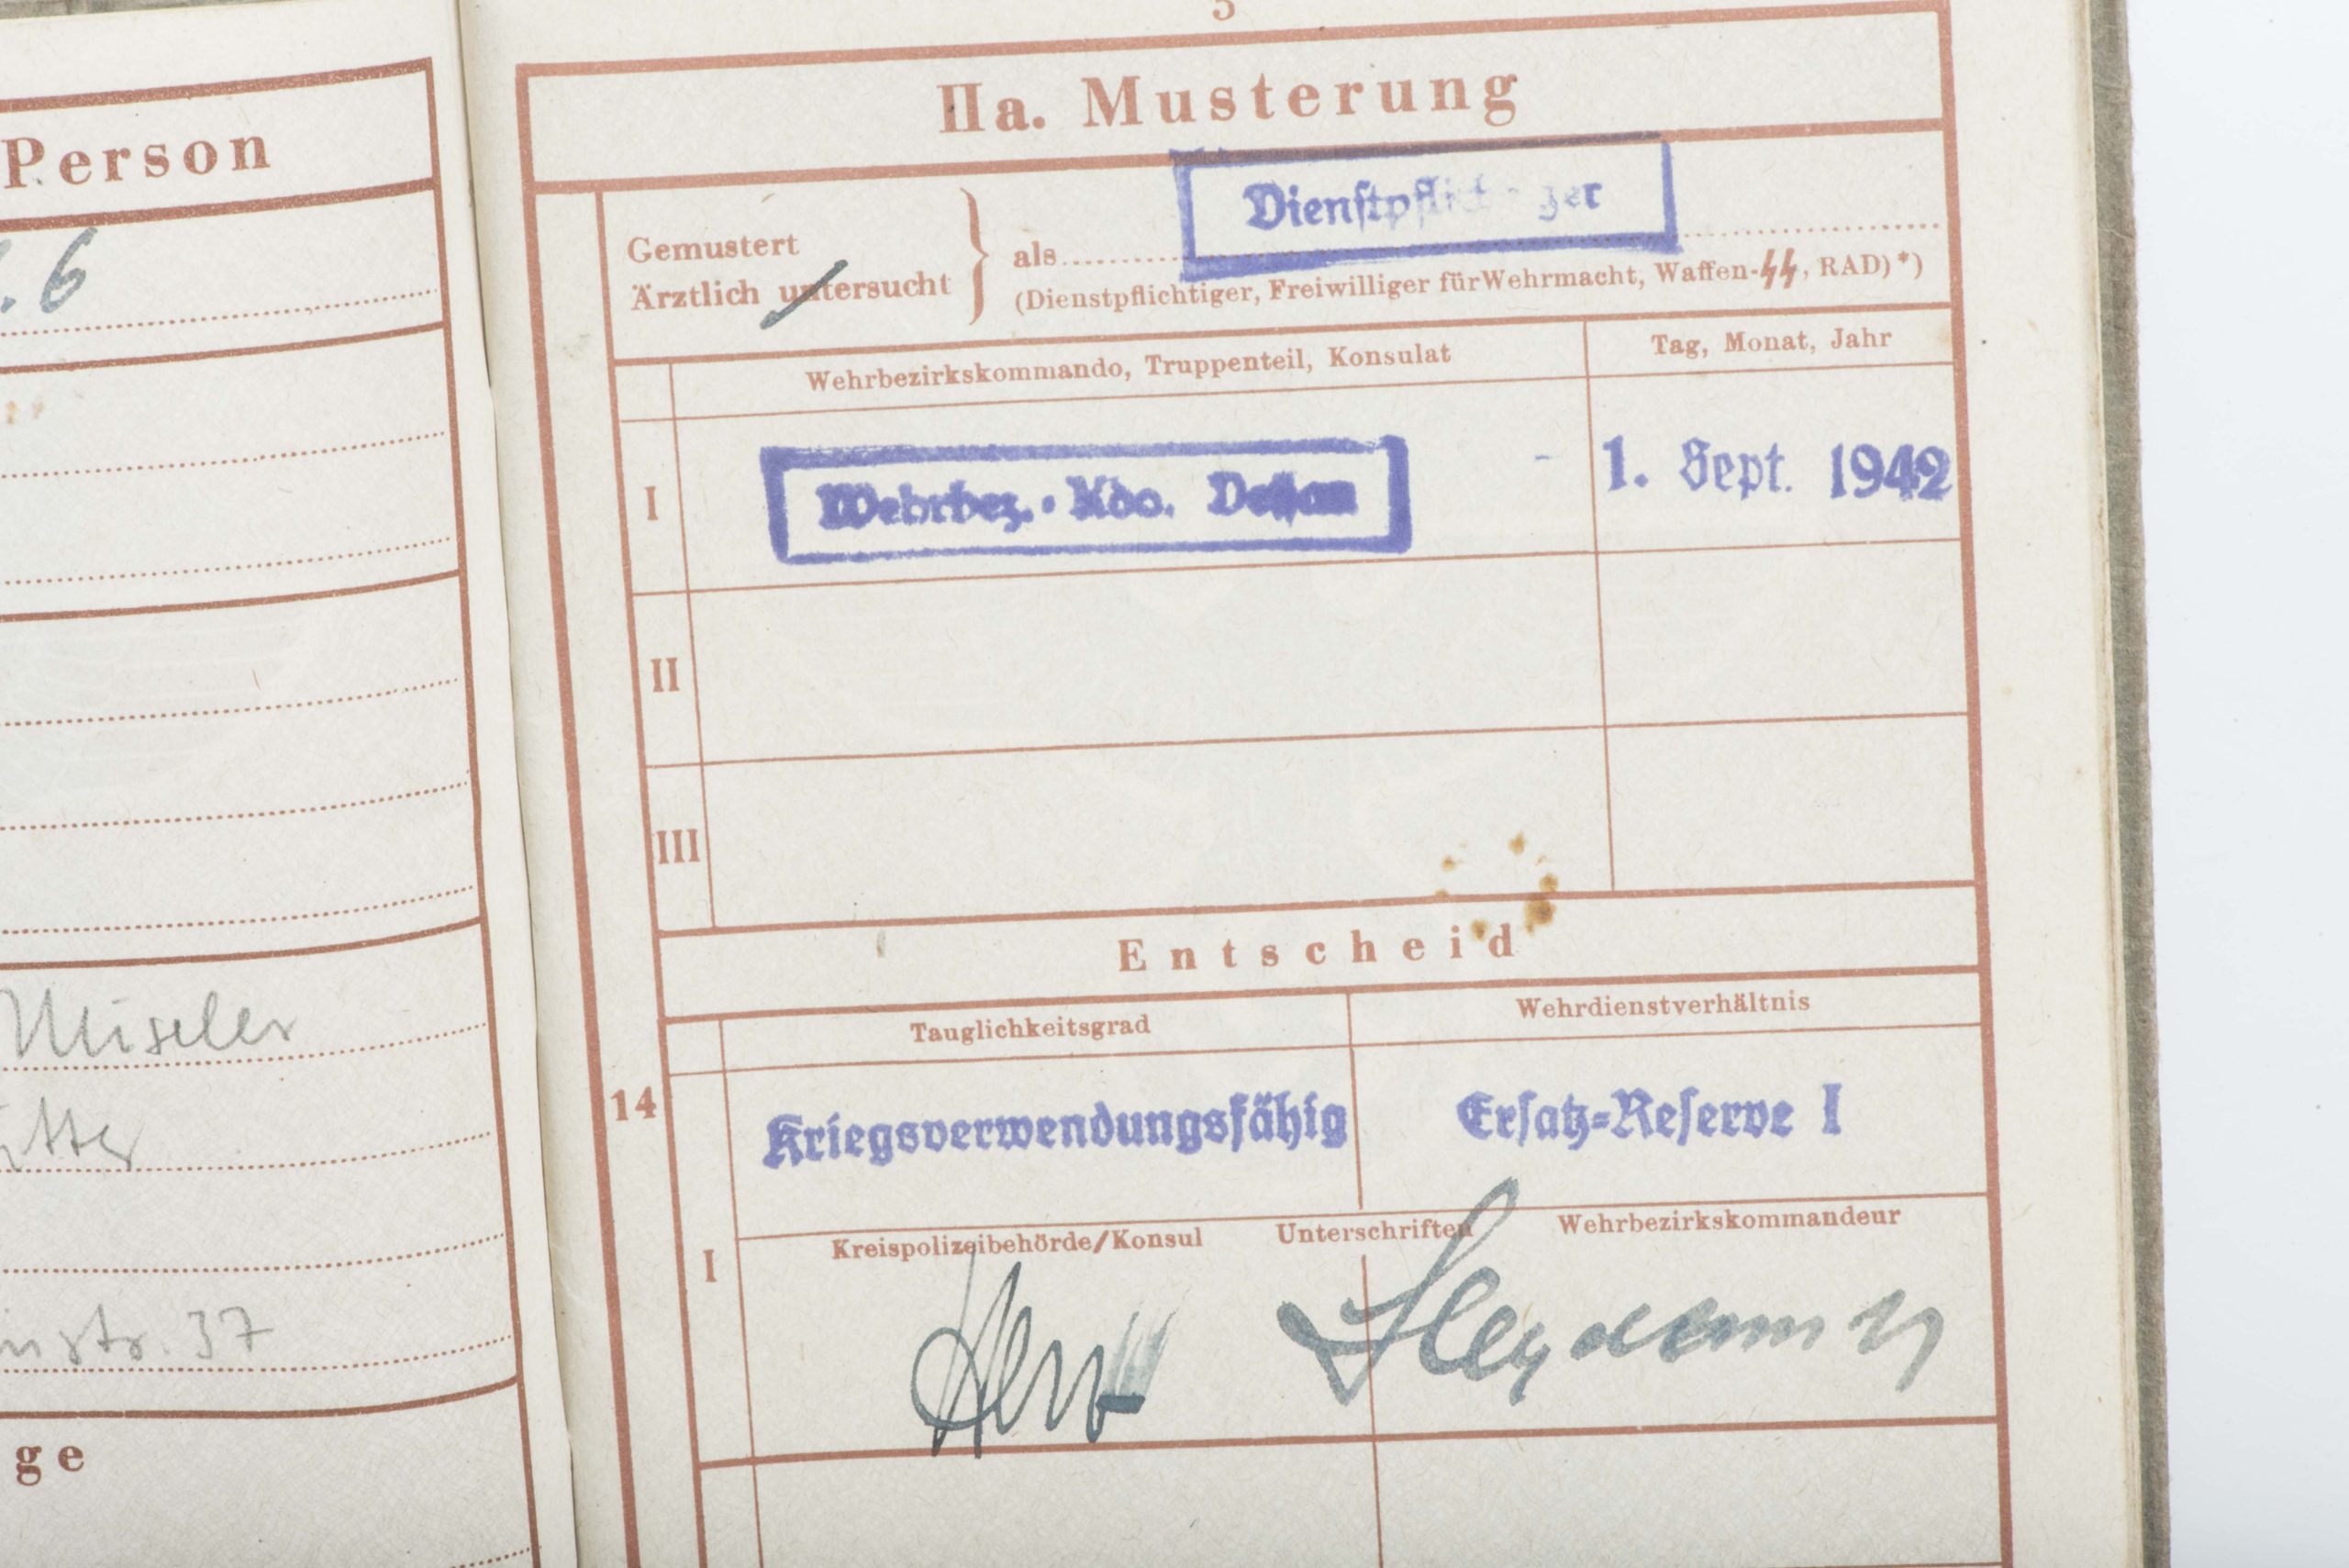 Person
.6
Miseler
str. 37
ge
5
IIa. Musterung
Dienstpflichtiger
Gemustert
Ärztlich untersucht
als
(Dienstpflichtiger, Freiwilliger für Wehrmacht, Waffen-ᛋᛋ, RAD)*)
Wehrbezirkskommando, Truppenteil, Konsulat
Tag, Monat, Jahr
I
Wehrbez.-Kdo. Dessau
- 1. Sept. 1942
II
III
Entscheid
Tauglichkeitsgrad
Wehrdienstverhältnis
14
Kriegsverwendungsfähig
Ersatz-Reserve I
Kreispolizeibehörde/Konsul
Unterschriften
Wehrbezirkskommandeur
I